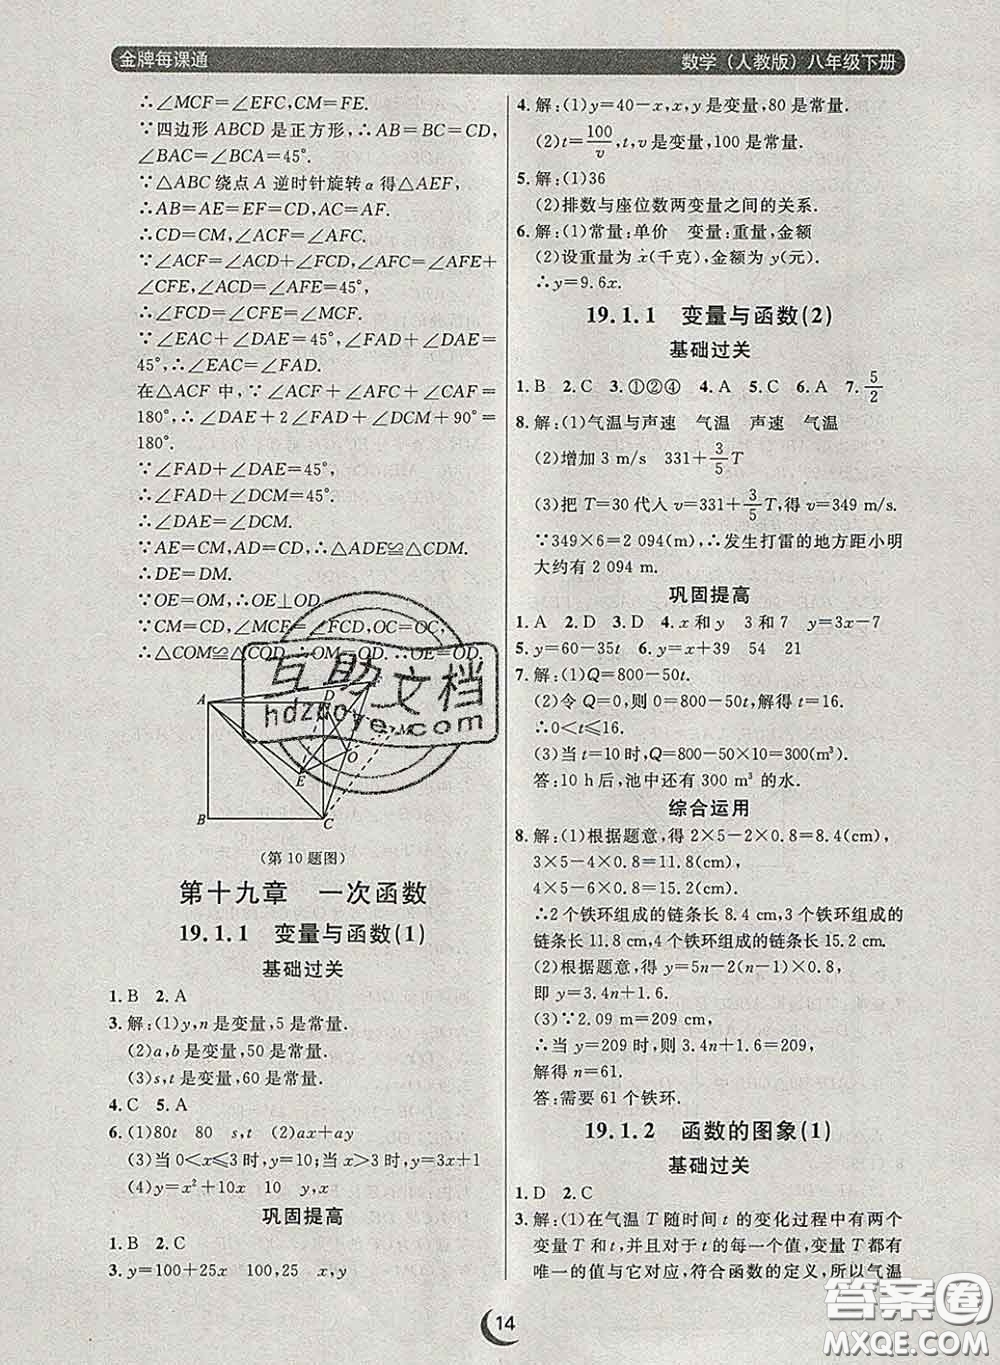 金牌每课通
数学(人教版)八年级下册
∴∠MCF=∠EFC,CM=FE.
∵四边形 ABCD 是正方形,∴AB=BC=CD,
∠BAC=∠BCA=45°.
∵△ABC 绕点 A 逆时针旋转 α 得△AEF,
∴AB=AE=EF=CD,AC=AF.
∴CD=CM,∠ACF=∠AFC.
∵∠ACF=∠ACD+∠FCD,∠AFC=∠AFE+
∠CFE,∠ACD=∠AFE=45°,
∴∠FCD=∠CFE=∠MCF.
∵∠EAC+∠DAE=45°,∠FAD+∠DAE=
45°,∴∠EAC=∠FAD.
在△ACF 中,∵∠ACF+∠AFC+∠CAF=
180°,∴∠DAE+2∠FAD+∠DCM+90°=
180°.
∵∠FAD+∠DAE=45°,
∴∠FAD+∠DCM=45°.
∴∠DAE=∠DCM.
∵AE=CM,AD=CD,∴△ADE≌△CDM.
∴DE=DM.
∵OE=OM,∴OE⊥OD.
∵CM=CD,∠MCF=∠FCD,OC=OC,
∴△COM≌△COD.∴OM=OD.∴OE=OD.
A
D
F
M
O
E
B
C
(第10题图)
第十九章 一次函数
19.1.1 变量与函数(1)
基础过关
1.B 2.A
3.解:(1)y,n是变量,5是常量.
(2)a,b是变量,50是常量.
(3)s,t是变量,60是常量.
4.C 5.A
6.(1)80t 80 s,t (2)ax+ay
(3)当 0<x≤3时,y=10;当x>3时,y=3x+1
(4)y=x²+10x y,x
巩固提高
1.B 2.C
3.y=100+25x 100,25 x,y
4.解:(1)y=40-x,x,y是变量,80是常量.
(2)t=100/v,t,v是变量,100是常量.
5.解:(1)36
(2)排数与座位数两变量之间的关系.
6.解:(1)常量:单价 变量:重量,金额
(2)设重量为x(千克),金额为y(元).
∴y=9.6x.
19.1.1 变量与函数(2)
基础过关
1.B 2.C 3.①②④ 4.A 5.C 6.A 7.5/2
8.解:(1)气温与声速 气温 声速 气温
(2)增加3 m/s 331+3/5T
(3)把 T=30 代入 v=331+3/5T,得 v=349 m/s.
∵349×6=2 094(m),∴发生打雷的地方距小明
大约有 2 094 m.
巩固提高
1.A 2.D 3.D 4.x和y 3和7 y=3x-7
5.y=60-35t 6.y=x+39 54 21
7.解:(1)Q=800-50t.
(2)令Q=0,则0=800-50t,解得t=16.
∴0<t≤16.
(3)当t=10时,Q=800-50×10=300(m³).
答:10 h后,池中还有 300 m³ 的水.
综合运用
8.解:(1)根据题意,得 2×5-2×0.8=8.4(cm),
3×5-4×0.8=11.8(cm),
4×5-6×0.8=15.2(cm).
∴2个铁环组成的链条长8.4 cm,3个铁环组成的
链条长11.8 cm,4个铁环组成的链条长15.2 cm.
(2)根据题意,得 y=5n-2(n-1)×0.8,
即 y=3.4n+1.6.
(3)∵2.09 m=209 cm,
∴当 y=209 时,则 3.4n+1.6=209,
解得 n=61.
答:需要 61 个铁环.
19.1.2 函数的图象(1)
基础过关
1.D 2.C
3.解:(1)在气温 T 随时间 t 的变化过程中有两个
变量 T 和 t,并且对于 t 的每一个值,变量 T 都有
唯一的值与它对应,符合函数的定义,所以气温
14
互助文档
hdzuoye.com
答案圈
MXQE.COM